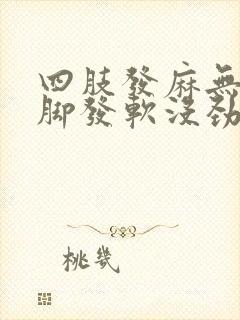 四肢發麻無
腳發軟沒勁
桃幾